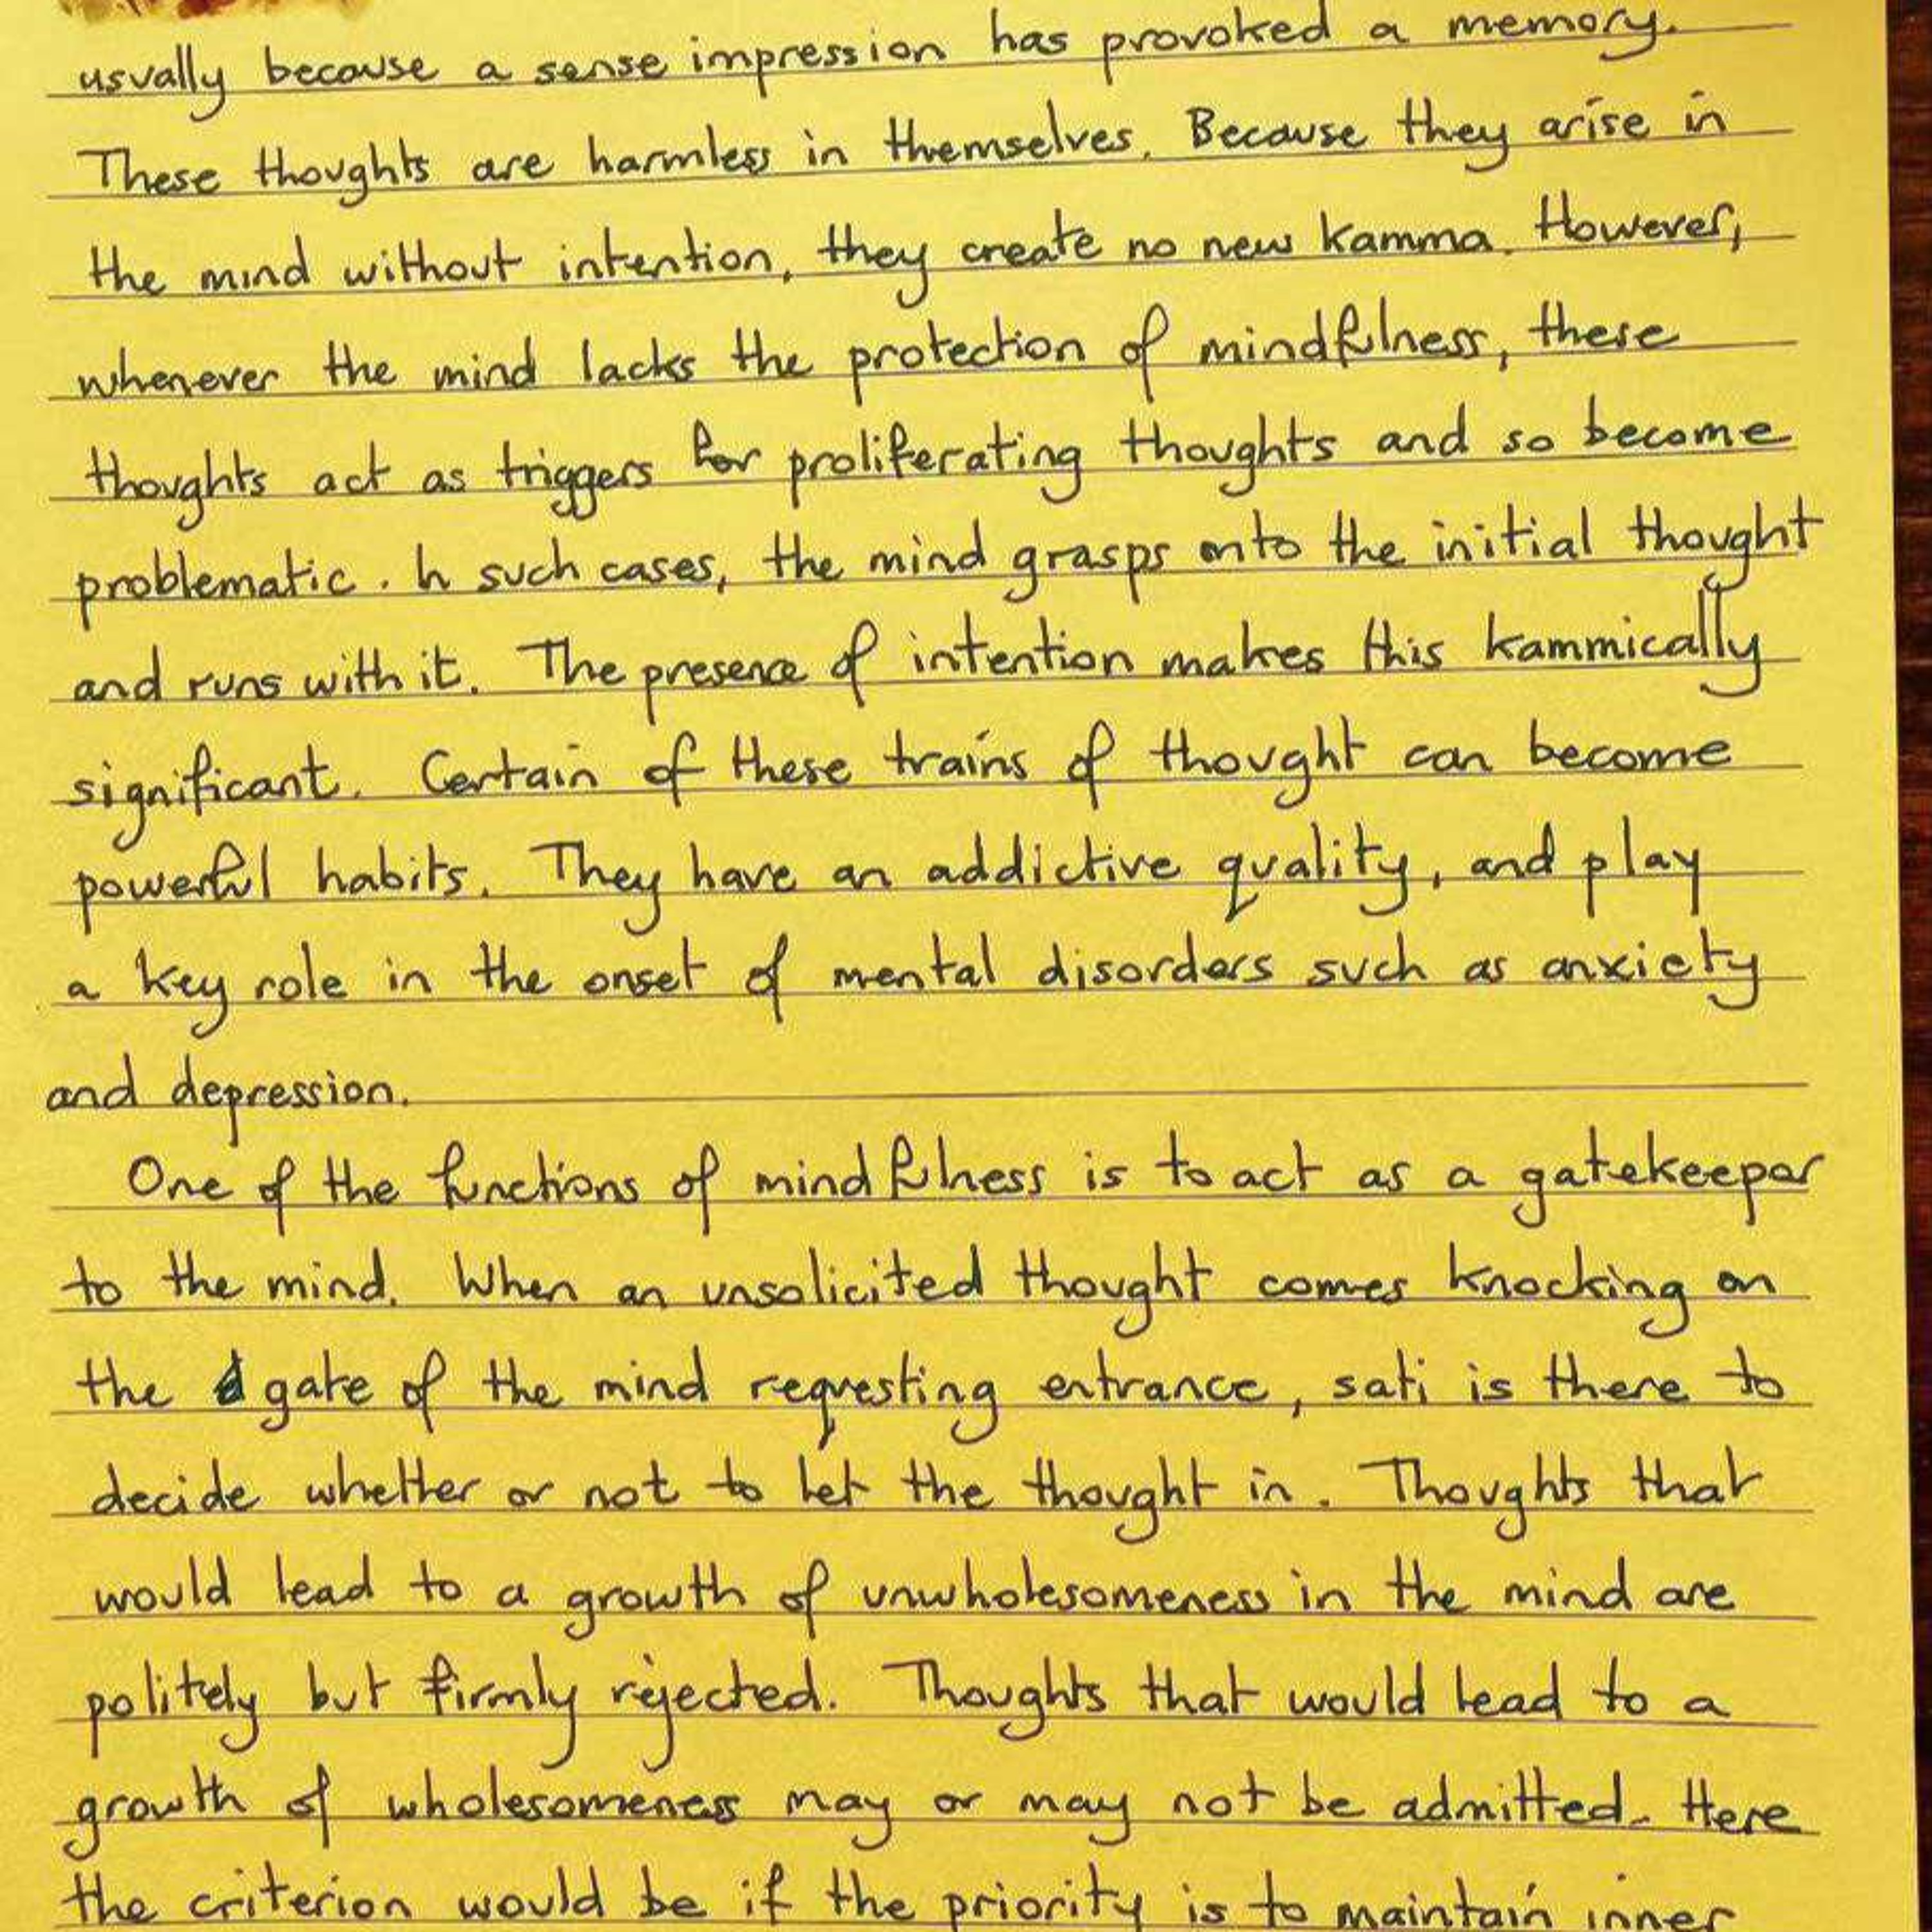 usually because a sense impression has provoked a memory.
These thoughts are harmless in themselves. Because they arise in
the mind without intention, they create no new kamma. However,
whenever the mind lacks the protection of mindfulness, these
thoughts act as triggers for proliferating thoughts and so become
problematic. In such cases, the mind grasps onto the initial thought
and runs with it. The presence of intention makes this kammically
significant. Certain of these trains of thought can become
powerful habits. They have an addictive quality, and play
a key role in the onset of mental disorders such as anxiety
and depression.
One of the functions of mindfulness is to act as a gatekeeper
to the mind. When an unsolicited thought comes knocking on
the gate of the mind requesting entrance, sati is there to
decide whether or not to let the thought in. Thoughts that
would lead to a growth of unwholesomeness in the mind are
politely but firmly rejected. Thoughts that would lead to a
growth of wholesomeness may or may not be admitted. Here
the criterion would be if the priority is to maintain inner